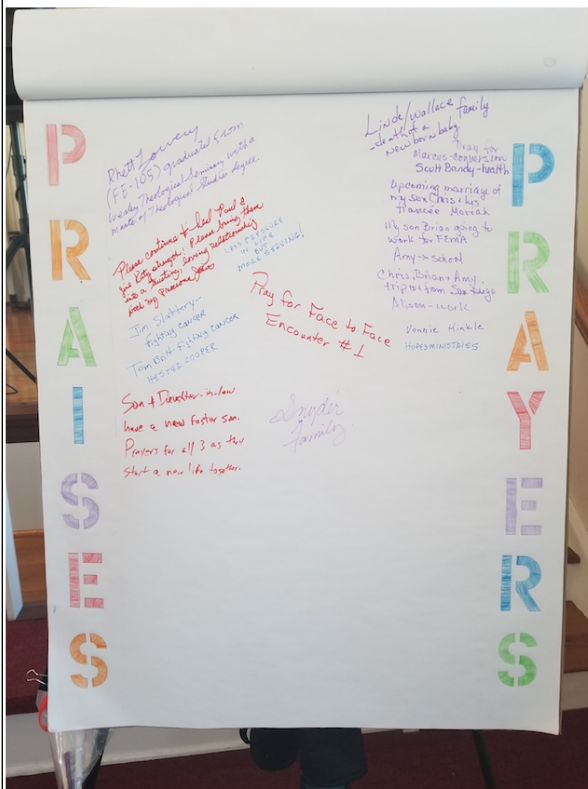 PRAISES
Rhett Lowery
(FE-105) graduated from
Wesley Theological Seminary with a
Master of Theological Studies degree.
Please continue to heal Paul &
give Katy strength! Please bring them
into a trusting, loving relationship
with my Precious Jesus
LESS PRESSURE
IN LIFE
MORE SERVING!
Jim Slattery-
fighting cancer
Tom Britt-fighting cancer
HESTER COOPER
Son & Daughter-in-law
have a new foster son.
Prayers for all 3 as they
start a new life together.
Pray for Face to Face
Encounter #1
Snyder
Family
Linde/Wallace family
-death of a
newborn baby
Pray for
Marcus-conversion
Scott Bandy-health
Upcoming marriage of
my son Chris & his
fiancée Mariah
My son Brian going to
work for FEMA
Amy-school
Chris, Brian & Amy
trip to/from San Diego
Alison-work
Vonnie Hinkle
HOPESMINISTRIES
PRAYERS